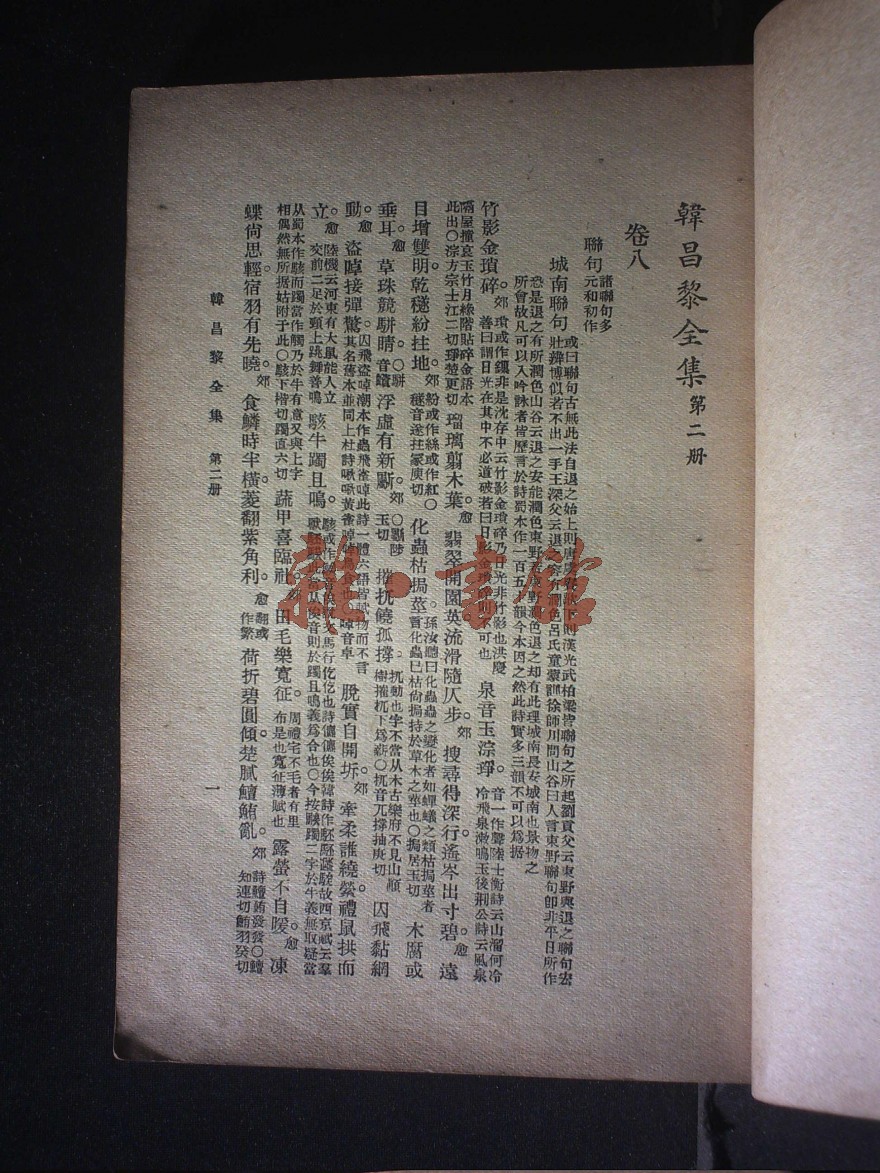 韓昌黎全集 第二册
卷八
聯句 諸聯句多元和初作
城南聯句 或曰聯句古無此法自退之始上則唐虞賡歌下則漢光武柏梁皆聯句之所起劉貢父云東野與退之聯句宏壯辯博似若不出一手王深父云退之容有潤色呂氏童蒙訓徐師川問山谷曰人言東野聯句卽非平日所作
悉是退之有所潤色山谷云退之安能潤色東野若東野潤色退之却有此理城南長安城南也景物之所會故凡可以入吟詠者皆歷言於詩蜀本作一百五十韻今本因之然此詩實多三韻不可以爲据
竹影金瑣碎。郊 瑣或作鏁非是沈存中云竹影金瑣碎乃日光非竹影也洪慶善曰謂日光在其中不必道破若曰日影金瑣碎則不可也 泉音玉淙琤。 音一作聲陸士衡詩云山溜何泠泠飛泉漱鳴玉後荆公詩云風泉
隔屋撞哀玉竹月緣階貼碎金語本此出○淙方宗士江二切琤楚更切 瑠璃翦木葉。愈 翡翠開園英流滑隨仄步。郊 搜尋得深行遙岑出寸碧。愈 遠
目增雙明乾穟紛拄地。郊 紛或作絲或作紅○穟音遂拄冢庾切 化蟲枯挶莖。 孫汝聽曰化蟲蟲之變化者如蟬蟻之類枯挶莖者言化蟲已枯尙挶持於草木之莖也○挶居玉切 木腐或
垂耳。愈 草珠競駢睛。 ○駢音 浮虛有新劚。郊 ○劚陟玉切 摧扤饒孤撐。 扤動也字不當从木古樂府不見山巓樹摧扤下爲薪○扤音兀撐抽庚切 囚飛黏網
動。愈 盜啅接彈驚。 囚飛盜啅潮本作蟲飛雀啅此詩一體六語皆賦物而不言其名舊本並同上杜詩啾啾黃雀啅 啅音卓 脫實自開坼。郊 牽柔誰繞縈禮鼠拱而
立。愈 陸機云河東有大鼠能人立交前二足於頸上跳舞善鳴 駭牛躅且鳴。
从蜀本作駭而躅當作觸乃於牛有意又與上字相偶然無所据姑附于此○駭下楷切躅直六切 蔬甲喜臨社。郊 田毛樂寬征。 周禮宅不毛者有里布是也寬征薄賦也 露螢不自暖。愈 凍
蝶尙思輕宿羽有先曉。郊 食鱗時半橫菱翻紫角利。愈 翻或作繁 荷折碧圓傾楚膩鱣鮪亂。郊 詩鱣鮪發發○鱣知連切鮪羽癸切
韓昌黎全集 第二册 一
雜·書館